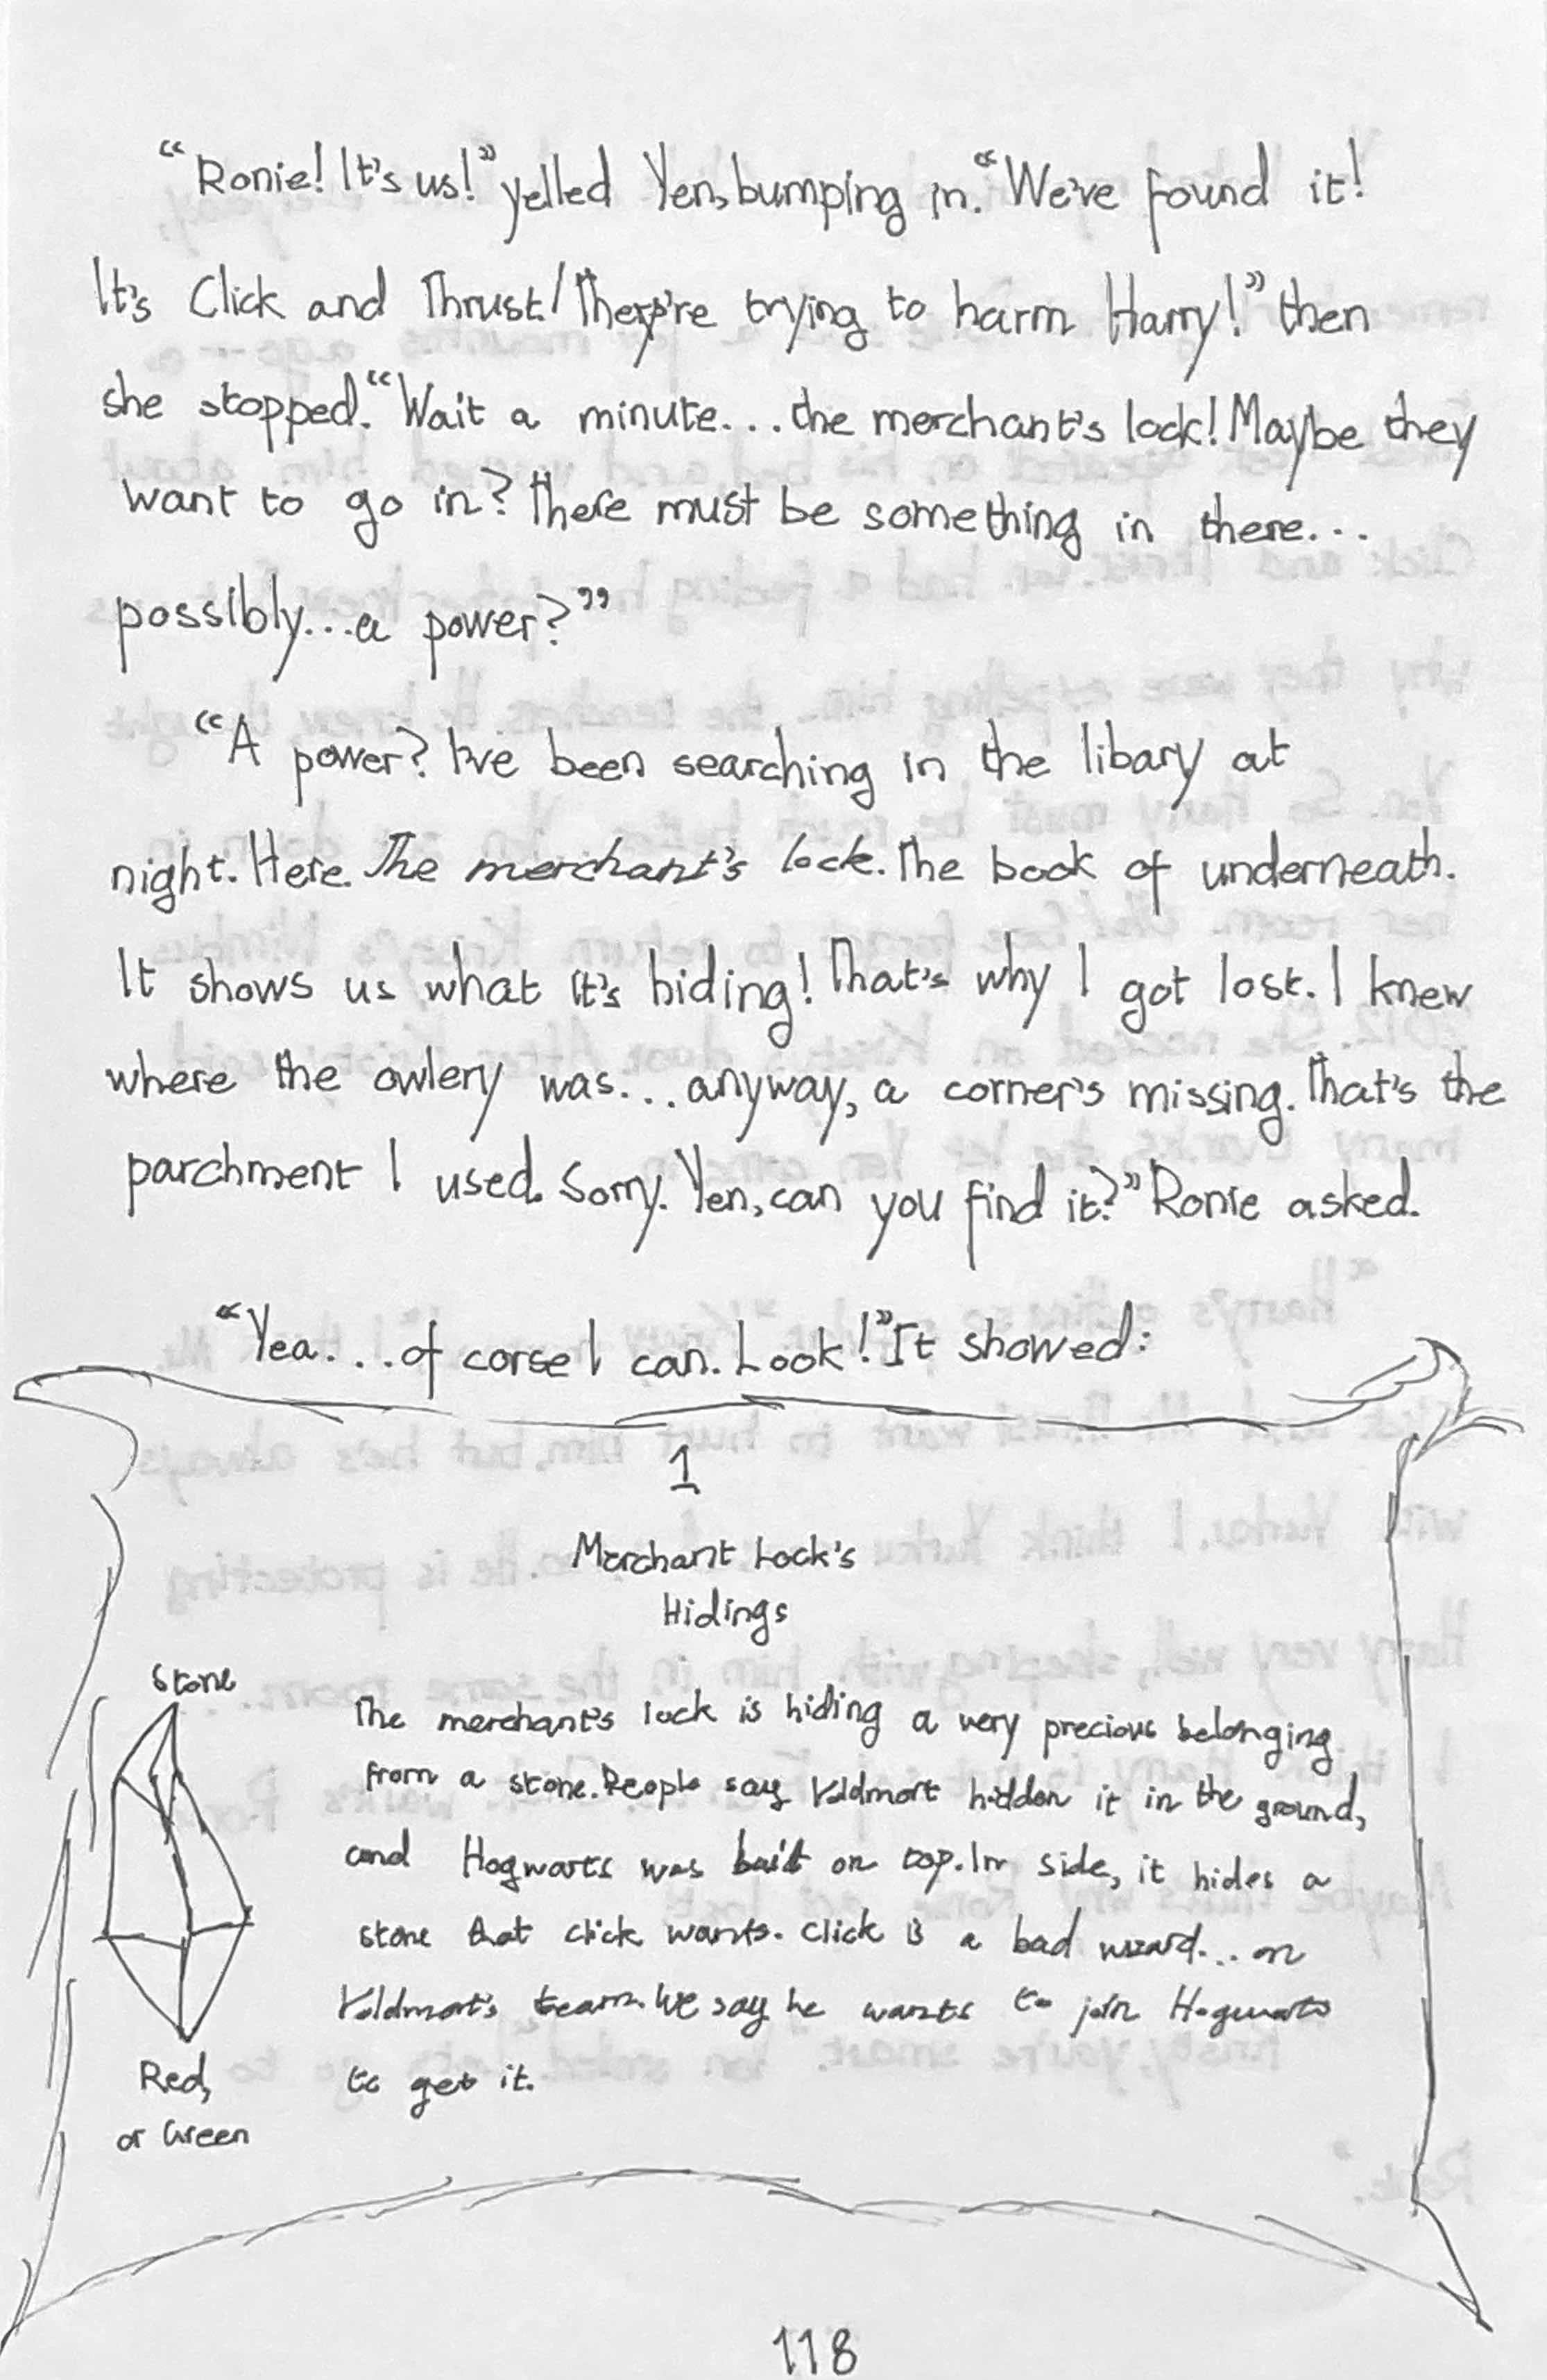 “Ronie! It's us!” yelled Yen, bumping in. “We've found it!
It's Click and Thrust! They're trying to harm Harry!” then
she stopped. “Wait a minute... the merchant's lock! Maybe they
want to go in? There must be something in there...
possibly...a power?”
“A power? I've been searching in the libary at
night. Here. The merchant's lock. The book of underneath.
It shows us what it's hiding! That's why I got lost. I knew
where the owlery was... anyway, a corner's missing. That's the
parchment I used. Sorry. Yen, can you find it?” Ronie asked.
“Yea...of corse I can. Look!” It showed:
1
Merchant Lock's
Hidings
Stone
The merchant's lock is hiding a very precious belonging
from a stone. People say Voldmort hidden it in the ground,
and Hogwarts was built on top. In side, it hides a
stone that click wants. Click is a bad wizard... on
Voldmort's team. We say he wants to join Hogwarts
to get it.
Red,
or Green
118